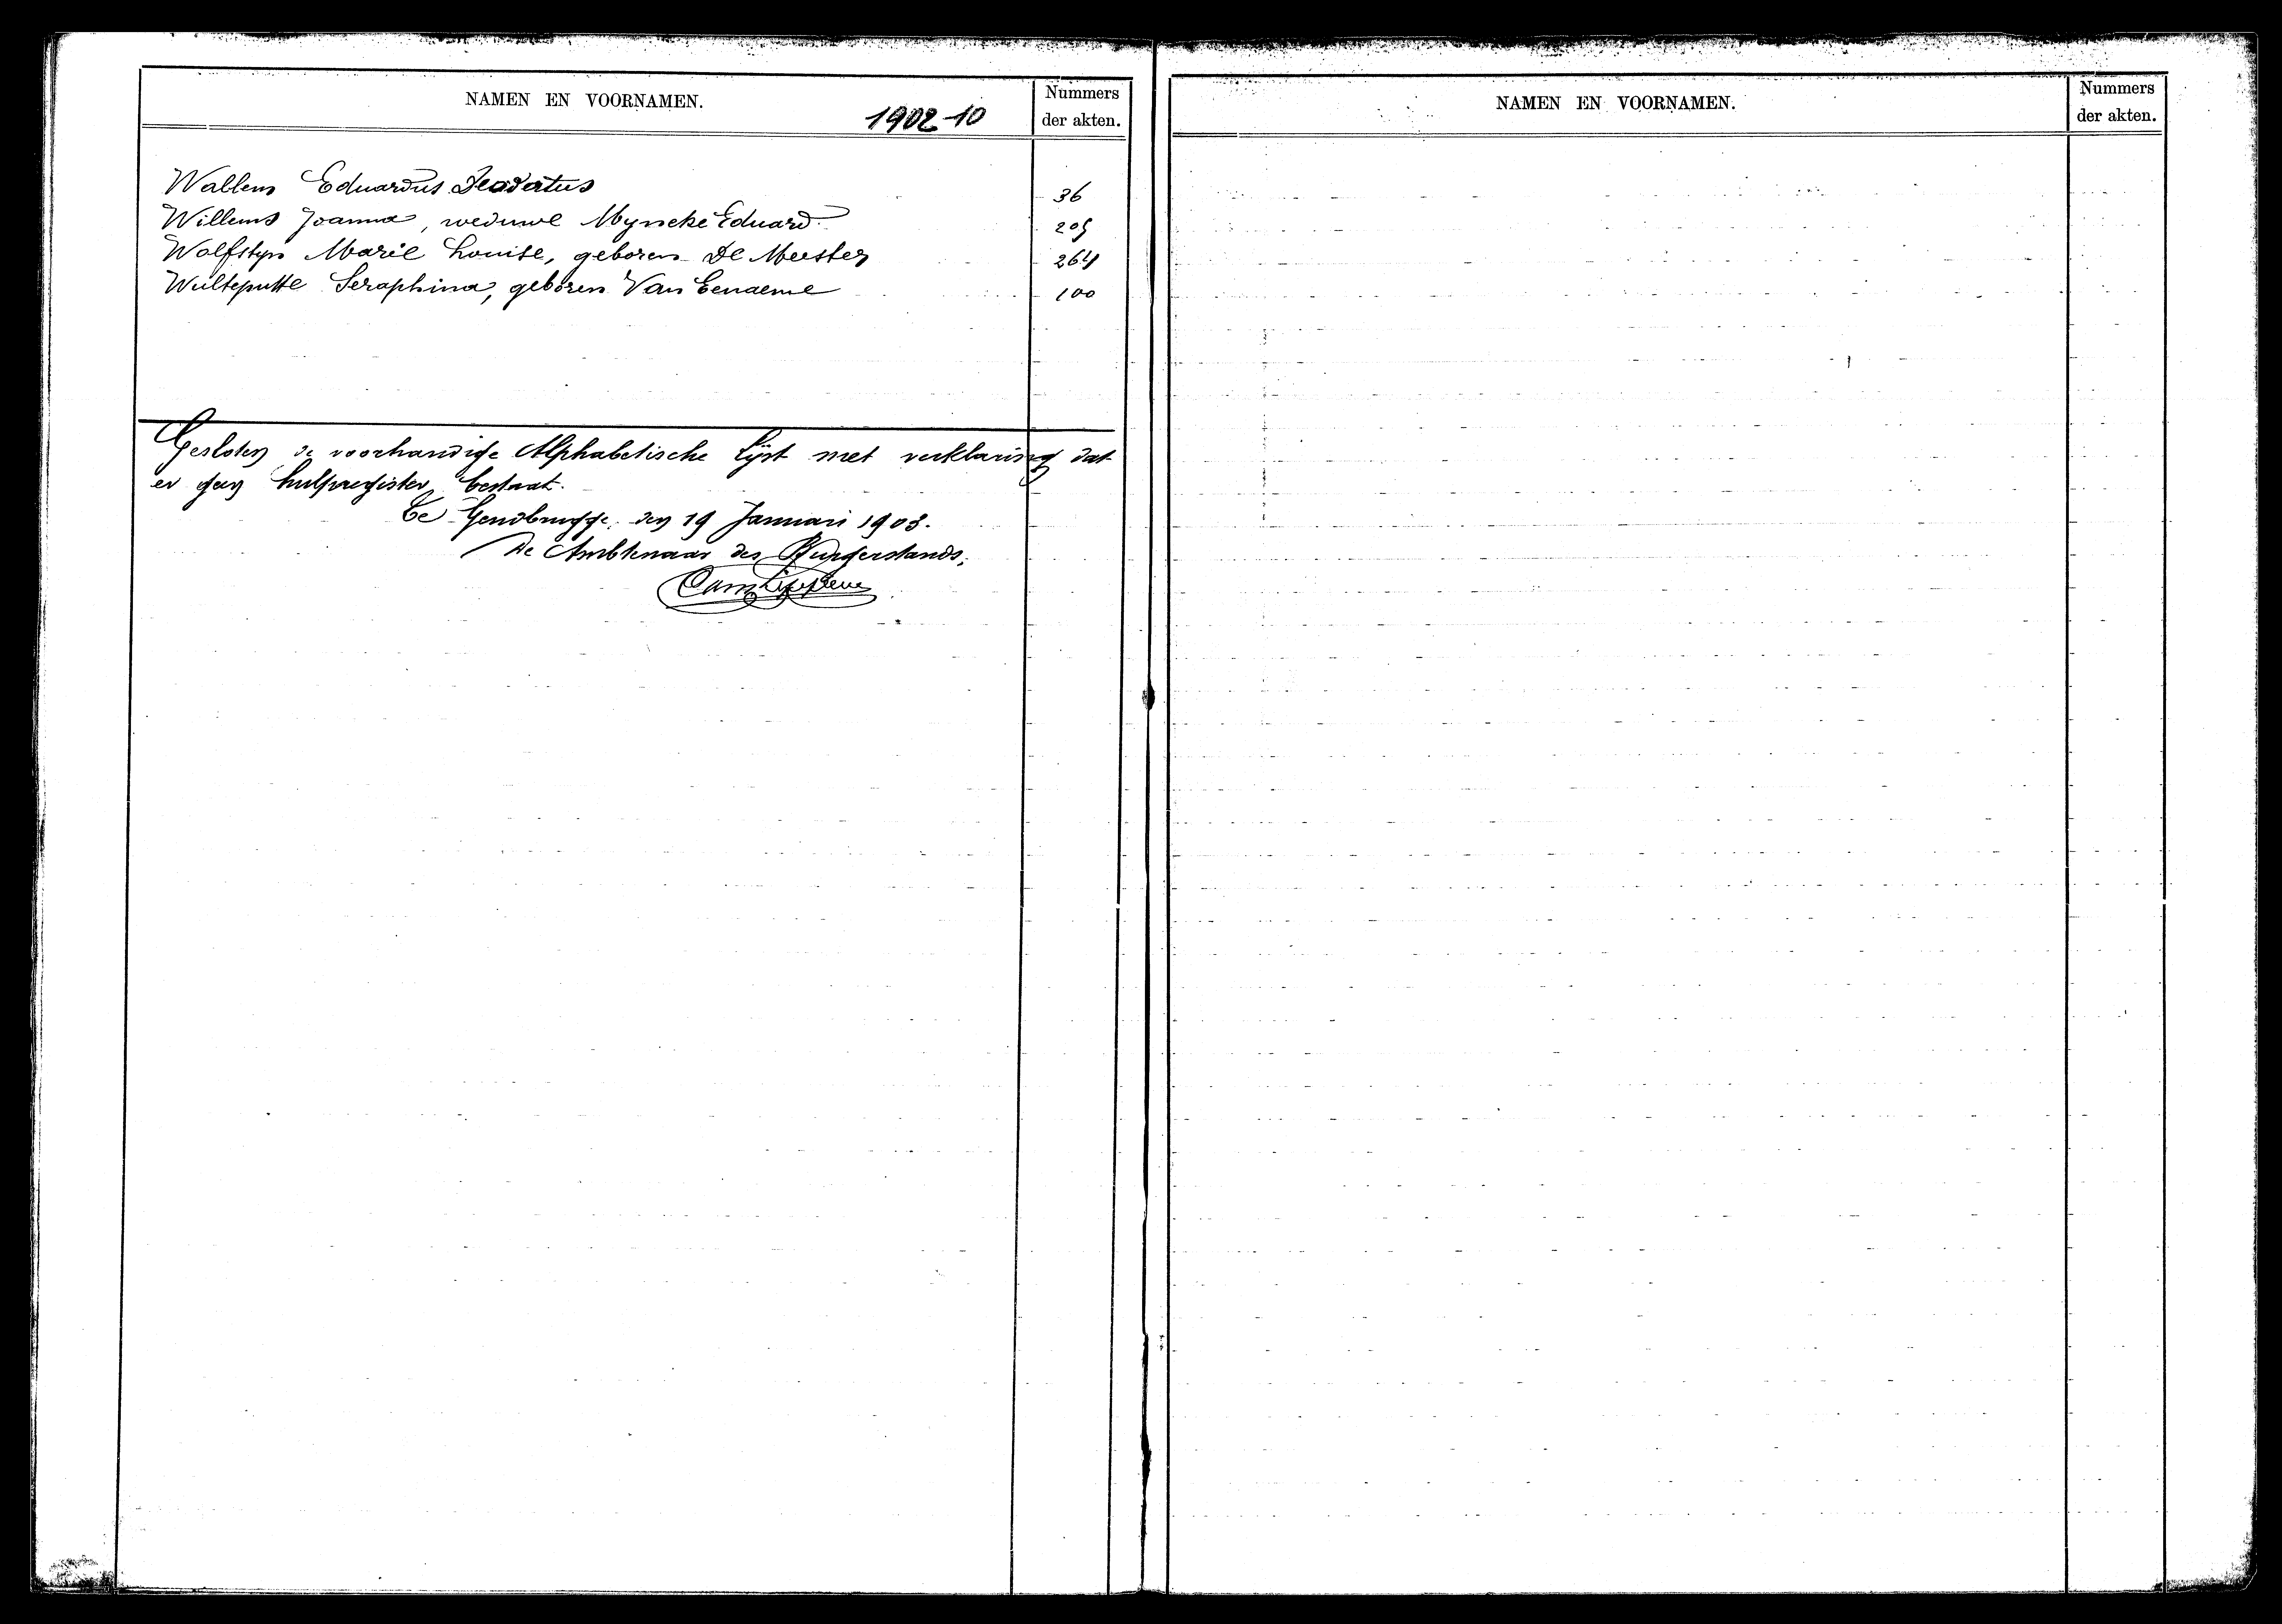 NAMEN EN VOORNAMEN.
1902-10
Nummers
der akten.
Wallem Eduardus Deodatus 36
Willems Joanna, weduwe Myncke Eduard 205
Wolfstyn Marie Louise, geboren De Meester 264
Wulteputte Seraphina, geboren Van Eenaeme 100
Gesloten de voorhandige Alphabetische Lijst met verklaring dat
er geen hulpregister bestaat.
Te Gendbrugge, den 19 Januari 1903.
De Ambtenaar des Burgerstands,
NAMEN EN VOORNAMEN.
Nummers
der akten.